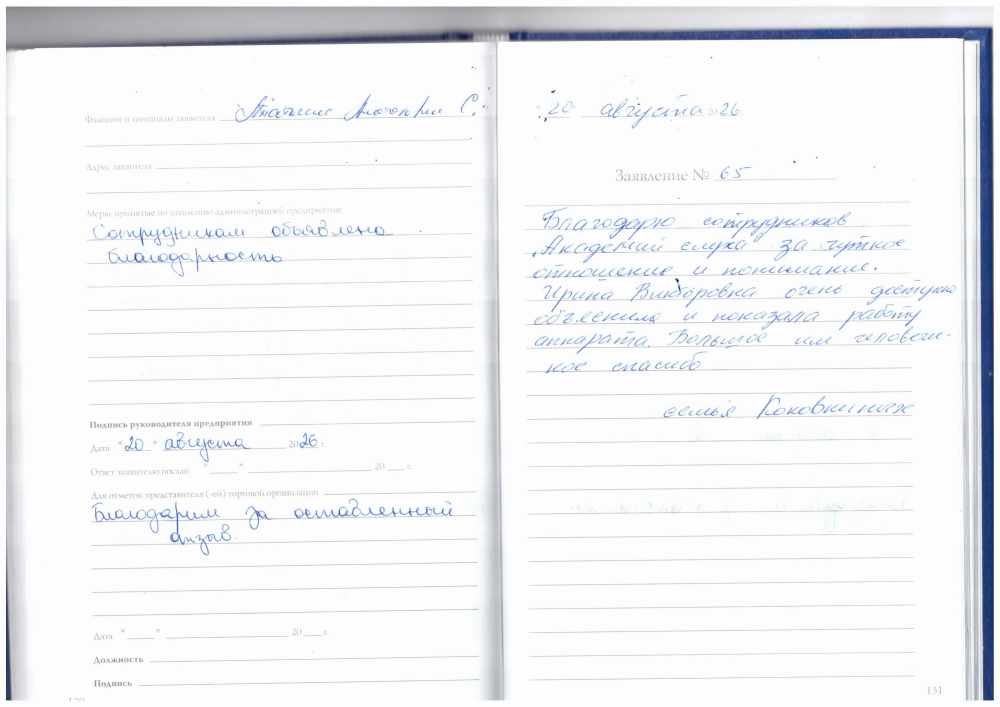 Фамилия и инициалы заявителя С.
Адрес заявителя
Меры, принятые по заявлению администрацией предприятия:
Сотрудникам объявлена
благодарность
Подпись руководителя предприятия
Дата "20" августа 2026 г.
Ответ заявителю послан " " 20 г.
Для отметок представителя (-ей) торговой организации
Благодарим за оставленный
отзыв.
Дата " " 20 г.
Должность
Подпись
20 августа 26
Заявление № 65
Благодарю сотрудников
"Академии слуха" за чуткое
отношение и понимание.
Ирина Викторовна очень доступно
объяснила и показала работу
аппарата. Большое им человечес-
кое спасибо
семья
131